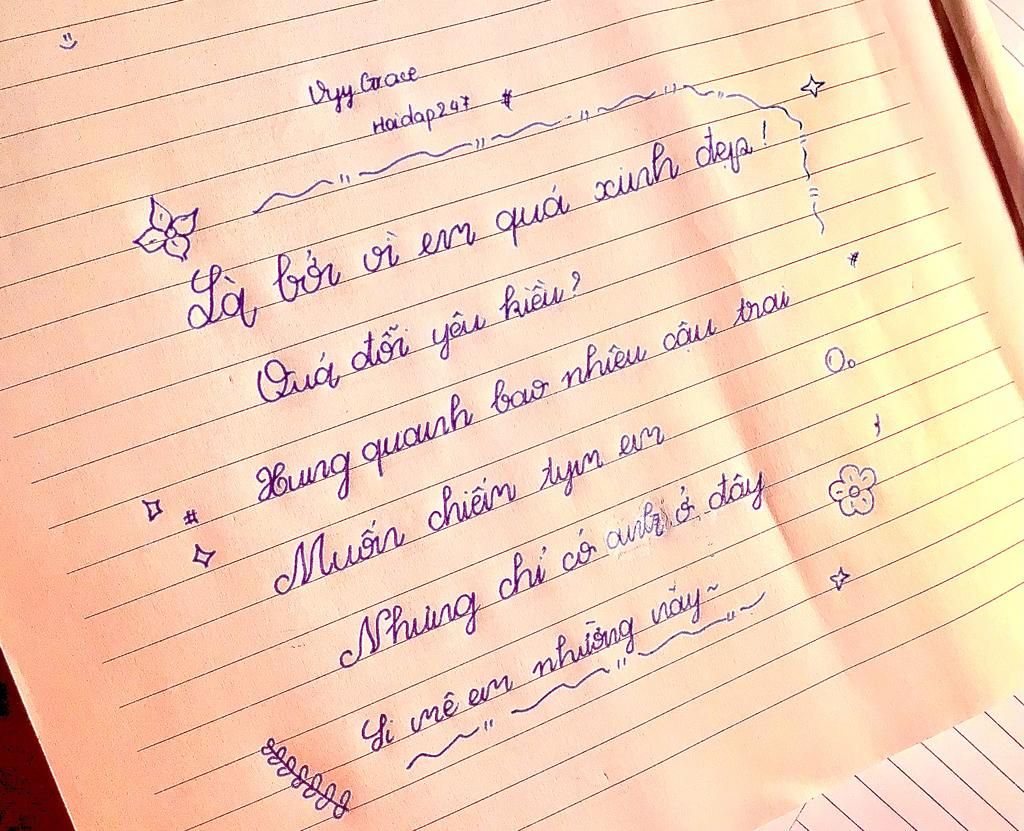 Vyy Grace
Hoidap247 #
Là bởi vì em quá xinh đẹp!
Quá đỗi yêu kiều?
Xung quanh bao nhiêu cậu trai
#
Muốn chiếm tym em
#
Nhưng chỉ có anh ở đây
Si mê em nhường nãy~